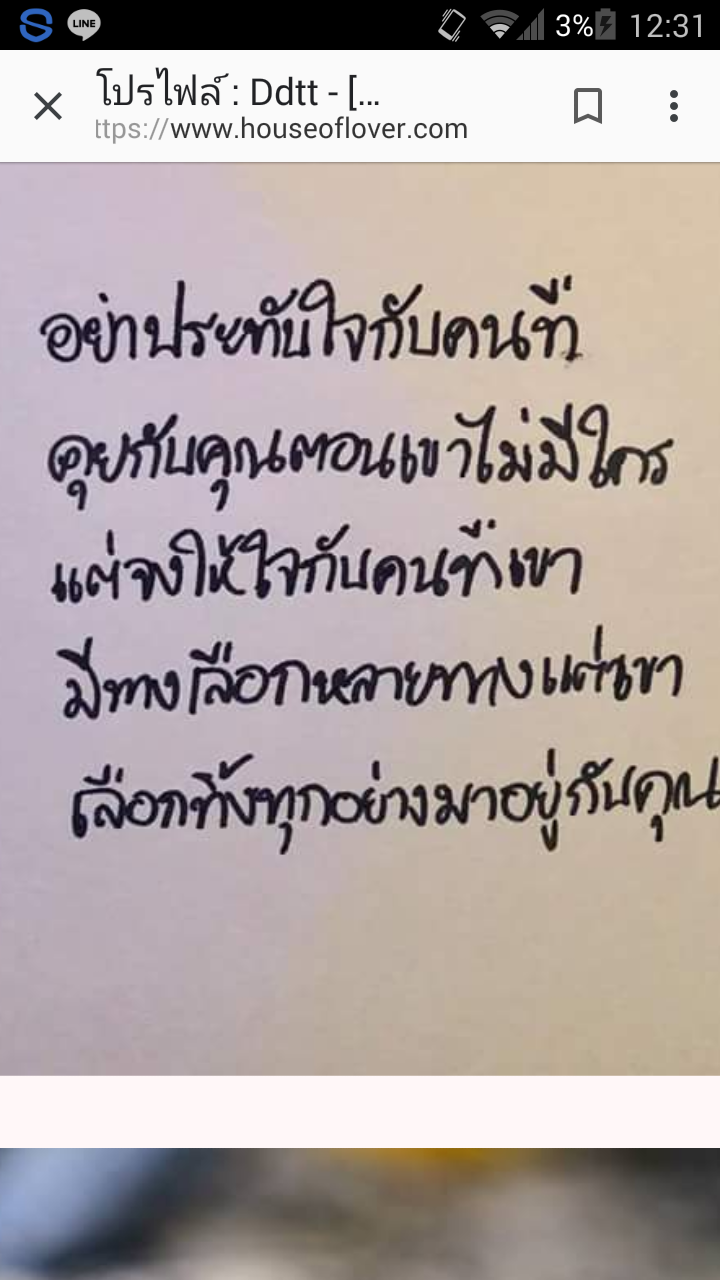 LINE
3% 12:31
โปรไฟล์ : Ddtt - [...
ttps://www.houseoflover.com
อย่าประทับใจกับคนที่
คุยกับคุณตอนเขาไม่มีใคร
แต่จงให้ใจกับคนที่เขา
มีทางเลือกหลายทางแต่เขา
เลือกทิ้งทุกอย่างมาอยู่กับคุณ